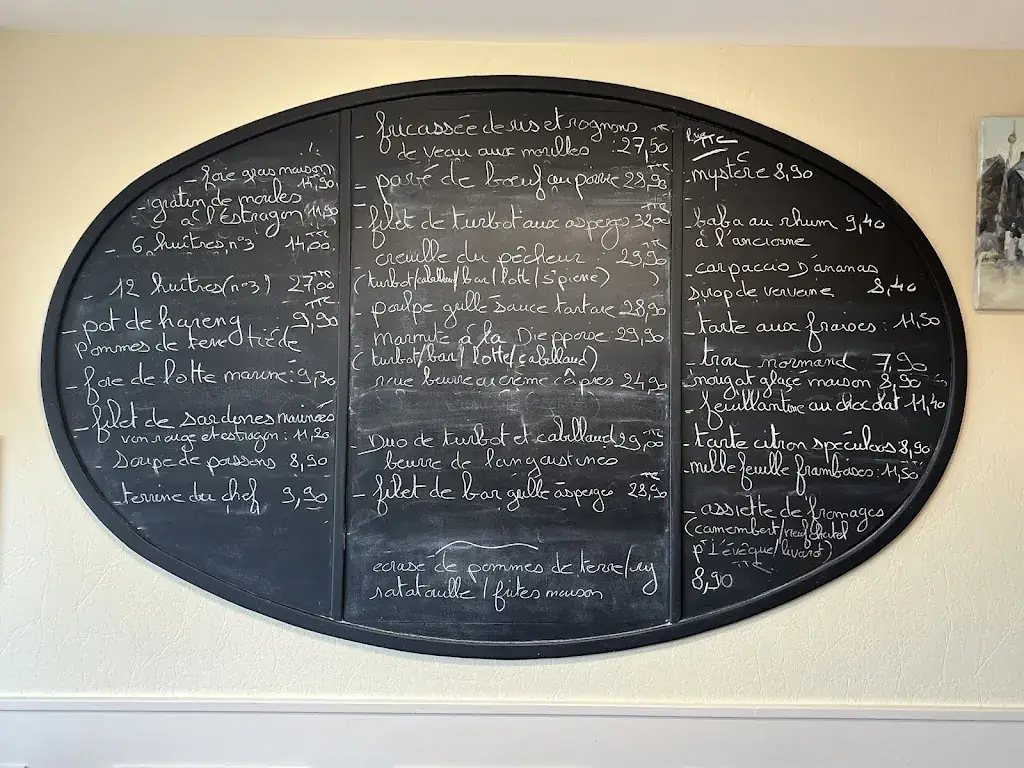 - foie gras maison
14,90
- gratin de moules
à l'éstragon 11,90
- 6 huîtres n°3 14,00
- 12 huîtres (n°3) 27,00
- pot de hareng 9,90
pommes de terre tiède
- foie de lotte mariné : 9,30
- filet de sardines marinées
vin rouge et estragon : 11,20
- soupe de poissons 8,90
- terrine du chef 9,90
- fricassée de ris et rognons
de veau aux morilles : 27,50
- pavé de bœuf au poivre 28,90
- filet de turbot aux asperges 32,00
- creuille du pêcheur : 29,90
(turbot/cabillaud/bar/lotte/St pierre)
- poulpe grillé sauce tartare 28,90
- marmite à la Dieppoise 29,90
(turbot/bar/lotte/cabillaud)
- raie beurre ou crème câpres 24,90
- Duo de turbot et cabillaud 29,00
beurre de langoustines
- filet de bar grillé asperges 28,90
écrasé de pommes de terre/riz
ratatouille/frites maison
Prix TTC
- mystère 8,90
- baba au rhum 9,40
à l'ancienne
- carpaccio D'ananas
sirop de verveine 8,40
- tarte aux fraises : 11,50
- trou normand 7,90
- nougat glacé maison 8,90
- feuillantine au chocolat 11,40
- tarte citron spéculoos 8,90
- mille feuille framboises : 11,50
- assiette de fromages
(camembert/neufchatel
p't L'évêque/livarot)
8,90